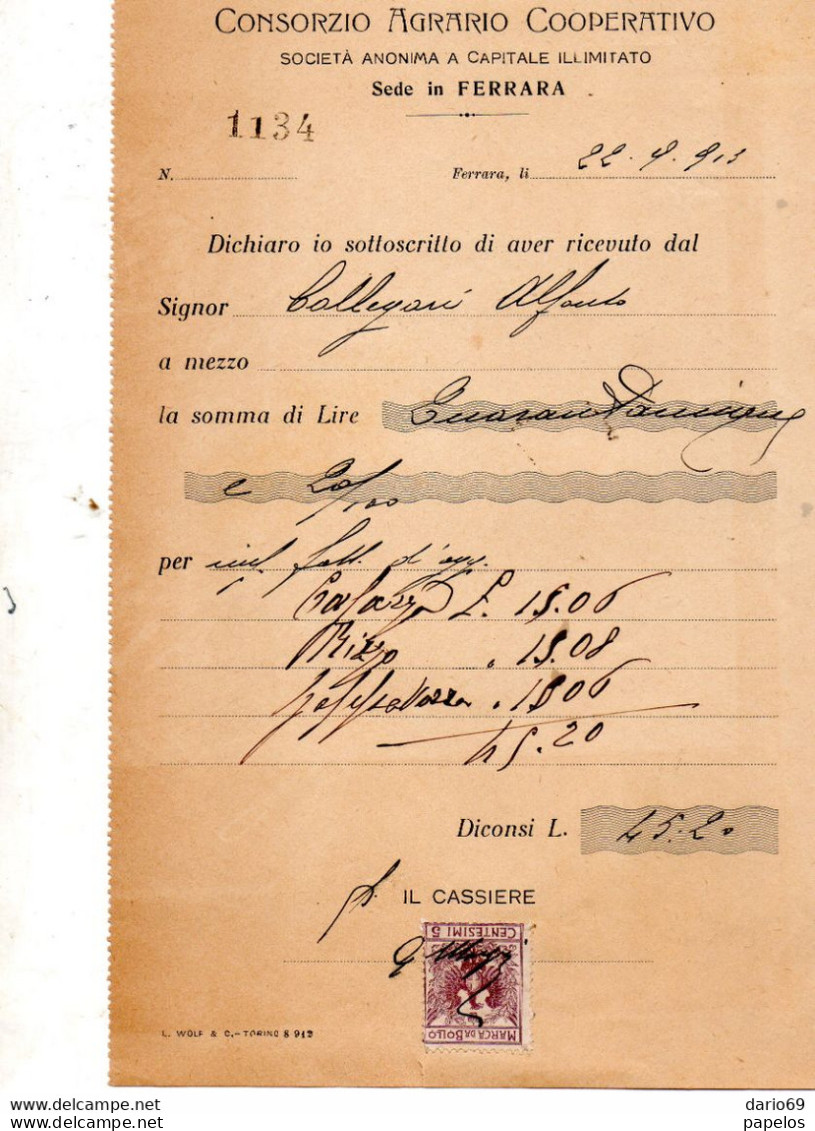 CONSORZIO AGRARIO COOPERATIVO
SOCIETÀ ANONIMA A CAPITALE ILLIMITATO
Sede in FERRARA
1134
N. Ferrara, li 22. 9. 913
Dichiaro io sottoscritto di aver ricevuto dal
Signor Callegari
a mezzo
la somma di Lire
e 20/100
per fatt. d'
£. 15.06
15.08
15.06
45.20
Diconsi L. 45.20
p. IL CASSIERE
CENTESIMI 5
MARCA DA BOLLO
L. WOLF & C.-TORINO 8 912
https://www.delcampe.net
dario69
papelos